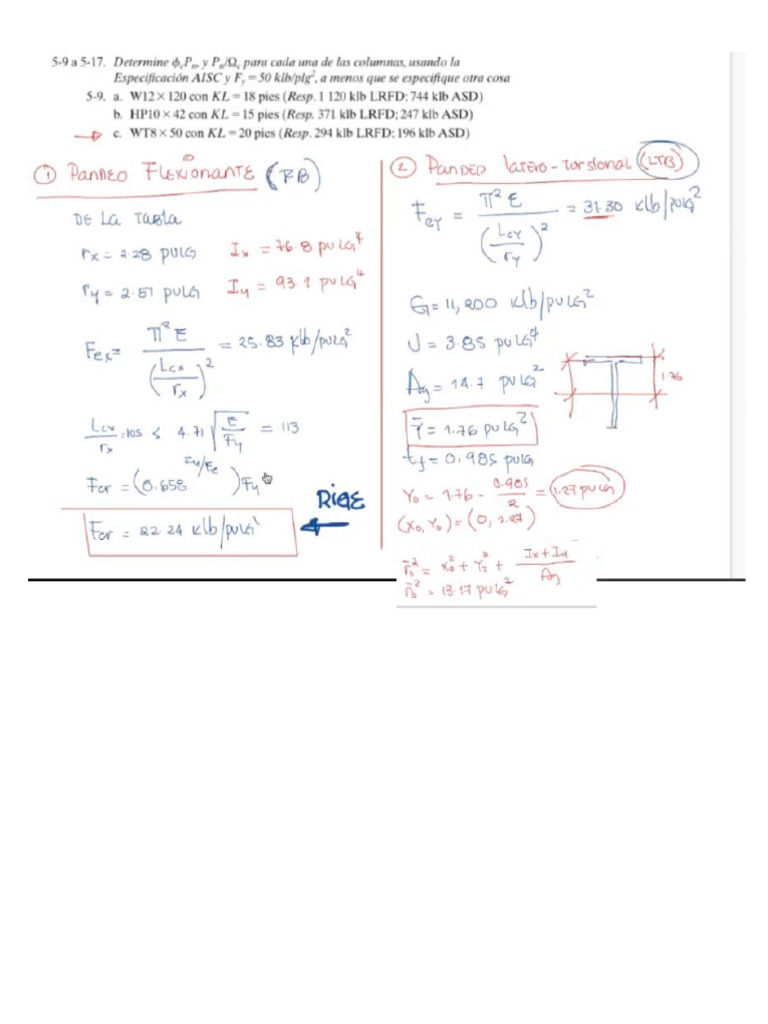 5-9 a 5-17. Determine ϕcPn, y Pn/Ωc para cada una de las columnas, usando la
Especificación AISC y Fy = 50 klb/plg², a menos que se especifique otra cosa
5-9. a. W12 × 120 con KL = 18 pies (Resp. 1 120 klb LRFD; 744 klb ASD)
b. HP10 × 42 con KL = 15 pies (Resp. 371 klb LRFD; 247 klb ASD)
c. WT8 × 50 con KL = 20 pies (Resp. 294 klb LRFD; 196 klb ASD)
① PANDEO FLEXIONANTE (FB)
DE LA TABLA
rx = 2.28 PULG Ix = 76.8 PULG⁴
ry = 2.51 PULG Iy = 93.1 PULG⁴
Fex = π²E / (Lcx/rx)² = 25.83 klb/PULG²
Lcx/rx = 105 ≤ 4.71 √(E/Fy) = 113
Fcr = (0.658^(Fy/Fe)) Fy
RIGE
Fcr = 22.24 klb/PULG²
② PANDEO LATERO-TORSIONAL (LTB)
Fey = π²E / (Lcy/ry)² = 31.30 klb/PULG²
G = 11,200 klb/PULG²
J = 3.85 PULG⁴
Ag = 14.7 PULG²
1.76
Y̅ = 1.76 PULG²
tf = 0.985 PULG
Yo = 1.76 - 0.985/2 = 1.27 PULG
(Xo, Yo) = (0, 1.27)
r̅o² = Xo² + Yo² + (Ix + Iy)/Ag
r̅o² = 13.17 PULG²